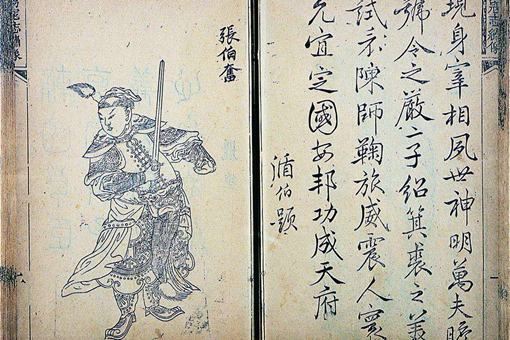 現身宰相夙世神明萬夫瞻
號令之嚴二子紹箕裘之義
試看陳師鞠旅威震人寰
允宜定國安邦功成天府
伯題
張伯奮